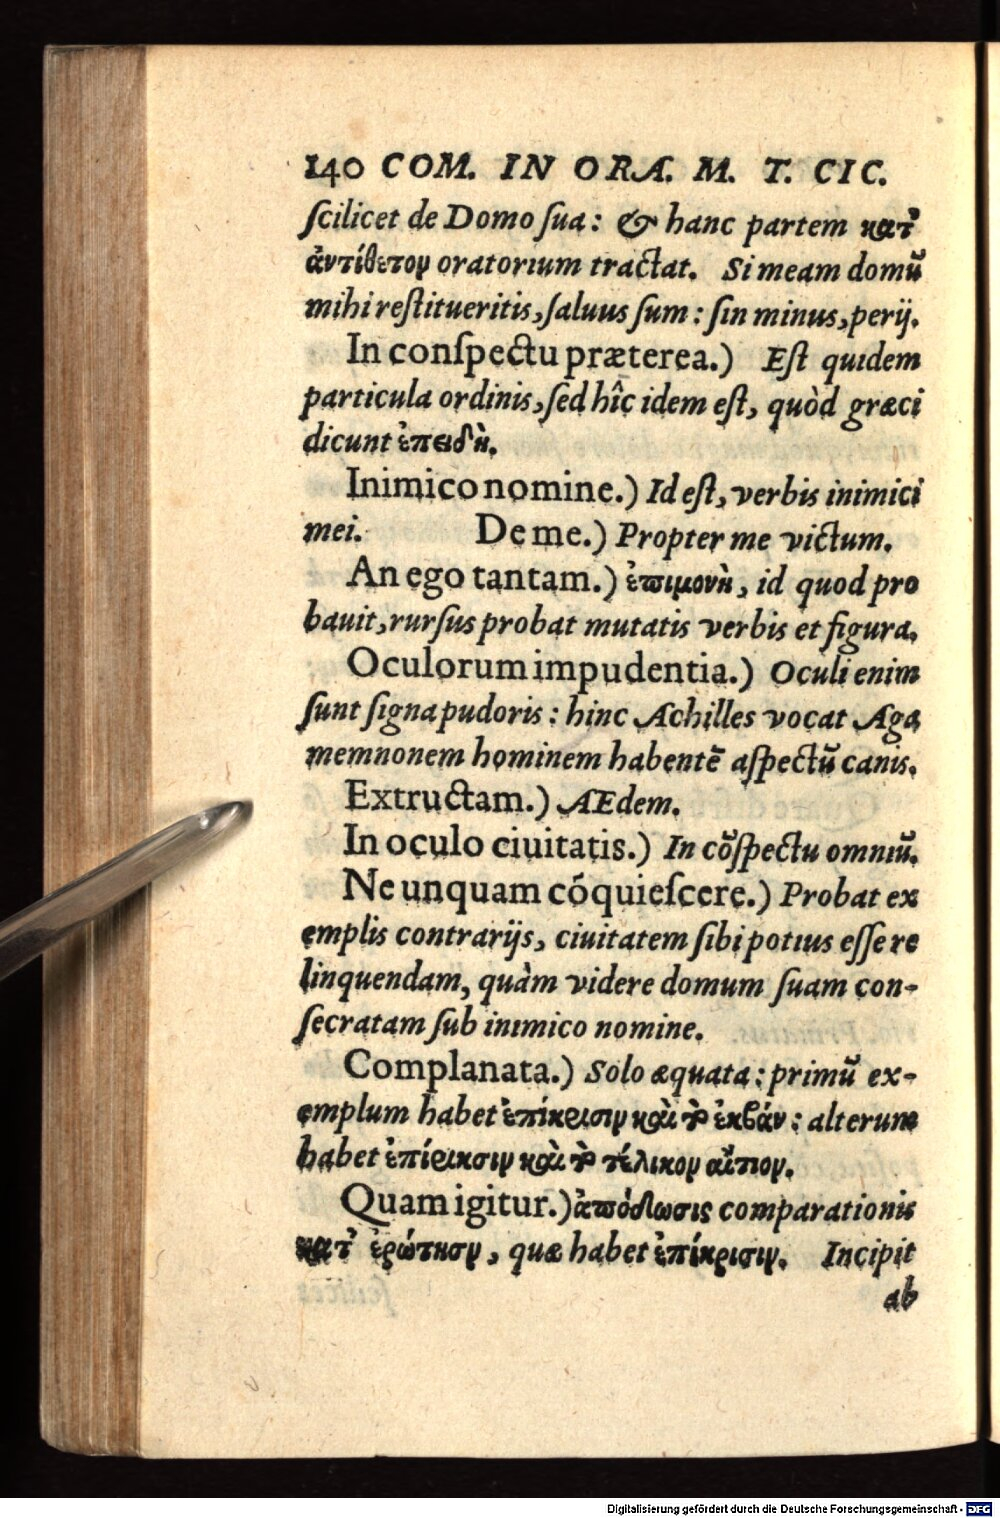 140 COM. IN ORA. M. T. CIC.
ſcilicet de Domo ſua: & hanc partem κατ᾽
ἀντίθετον oratorium tractat. Si meam domũ
mihi reſtitueritis, ſaluus ſum: ſin minus, perij.
In conſpectu præterea.) Eſt quidem
particula ordinis, ſed hîc idem eſt, quòd græci
dicunt ἐπειδὴ.
Inimico nomine.) Id eſt, verbis inimici
mei. De me.) Propter me victum.
An ego tantam.) ἐπιμονὴ, id quod pro
bauit, rurſus probat mutatis verbis et figura.
Oculorum impudentia.) Oculi enim
ſunt ſigna pudoris: hinc Achilles vocat Aga
memnonem hominem habentẽ aſpectũ canis.
Extructam.) AEdem.
In oculo ciuitatis.) In cõſpectu omniũ.
Ne unquam cóquieſcere.) Probat ex
emplis contrarijs, ciuitatem ſibi potius eſſe re
linquendam, quàm videre domum ſuam con-
ſecratam ſub inimico nomine.
Complanata.) Solo æquata: primũ ex-
emplum habet ἐπίκρισιν καὶ τὸ ἐκβάν: alterum
habet ἐπίρικσιν καὶ τὸ τέλικον αἴτιον.
Quam igitur.) ἀπόδωσις comparationis
κατ᾽ ἐρώτησν, quæ habet ἐπίκρισιν. Incipit
ab
Digitalisierung gefördert durch die Deutsche Forschungsgemeinschaft - DFG